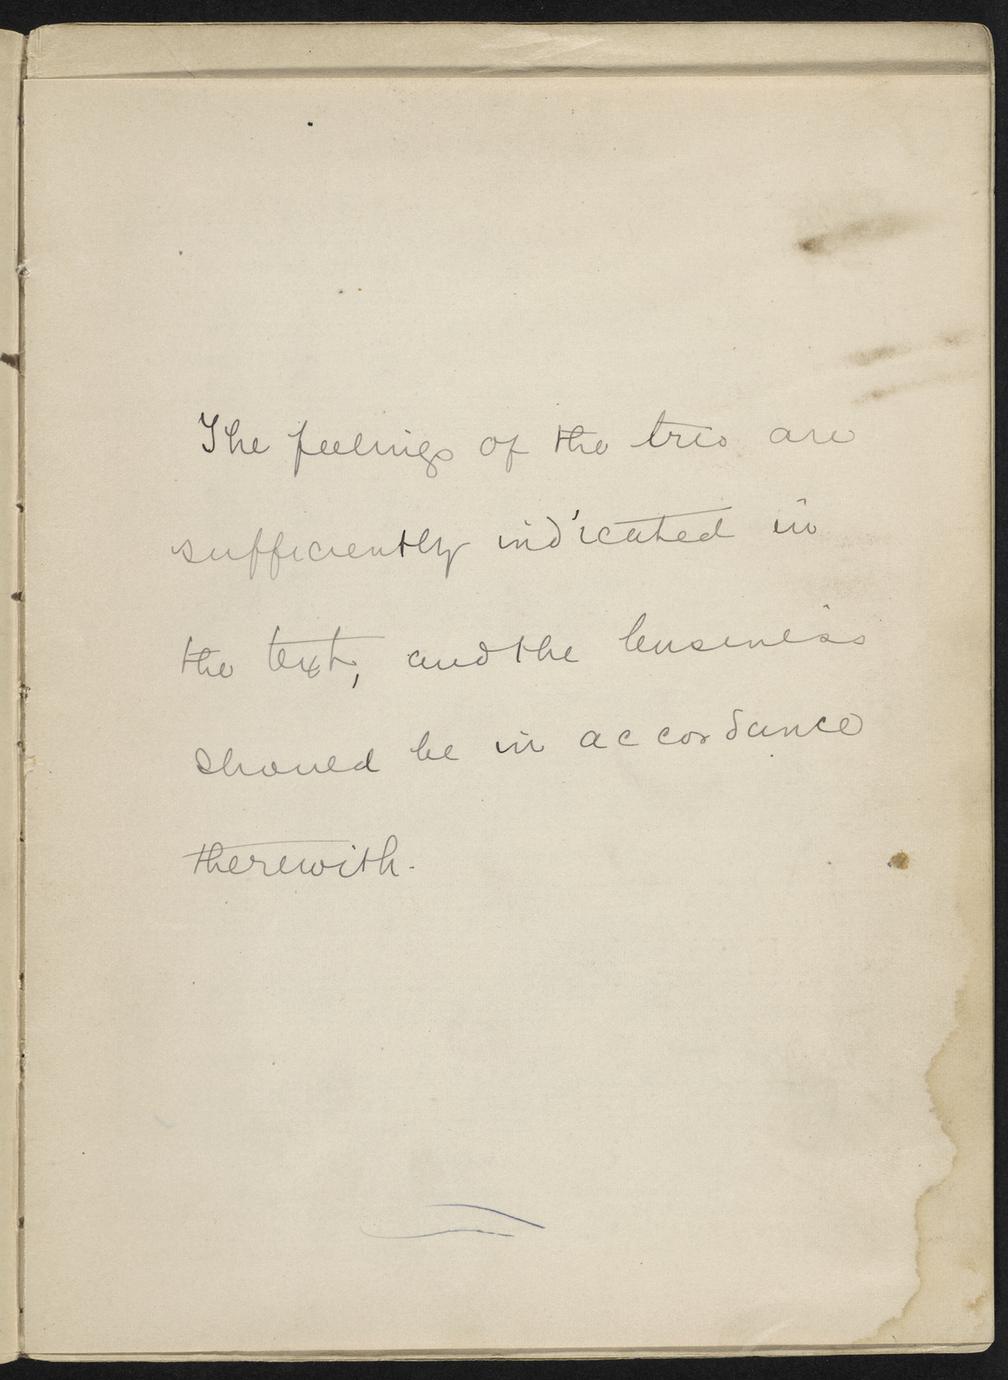 The feelings of the trio are
sufficiently indicated in
the text, and the business
should be in accordance
therewith.